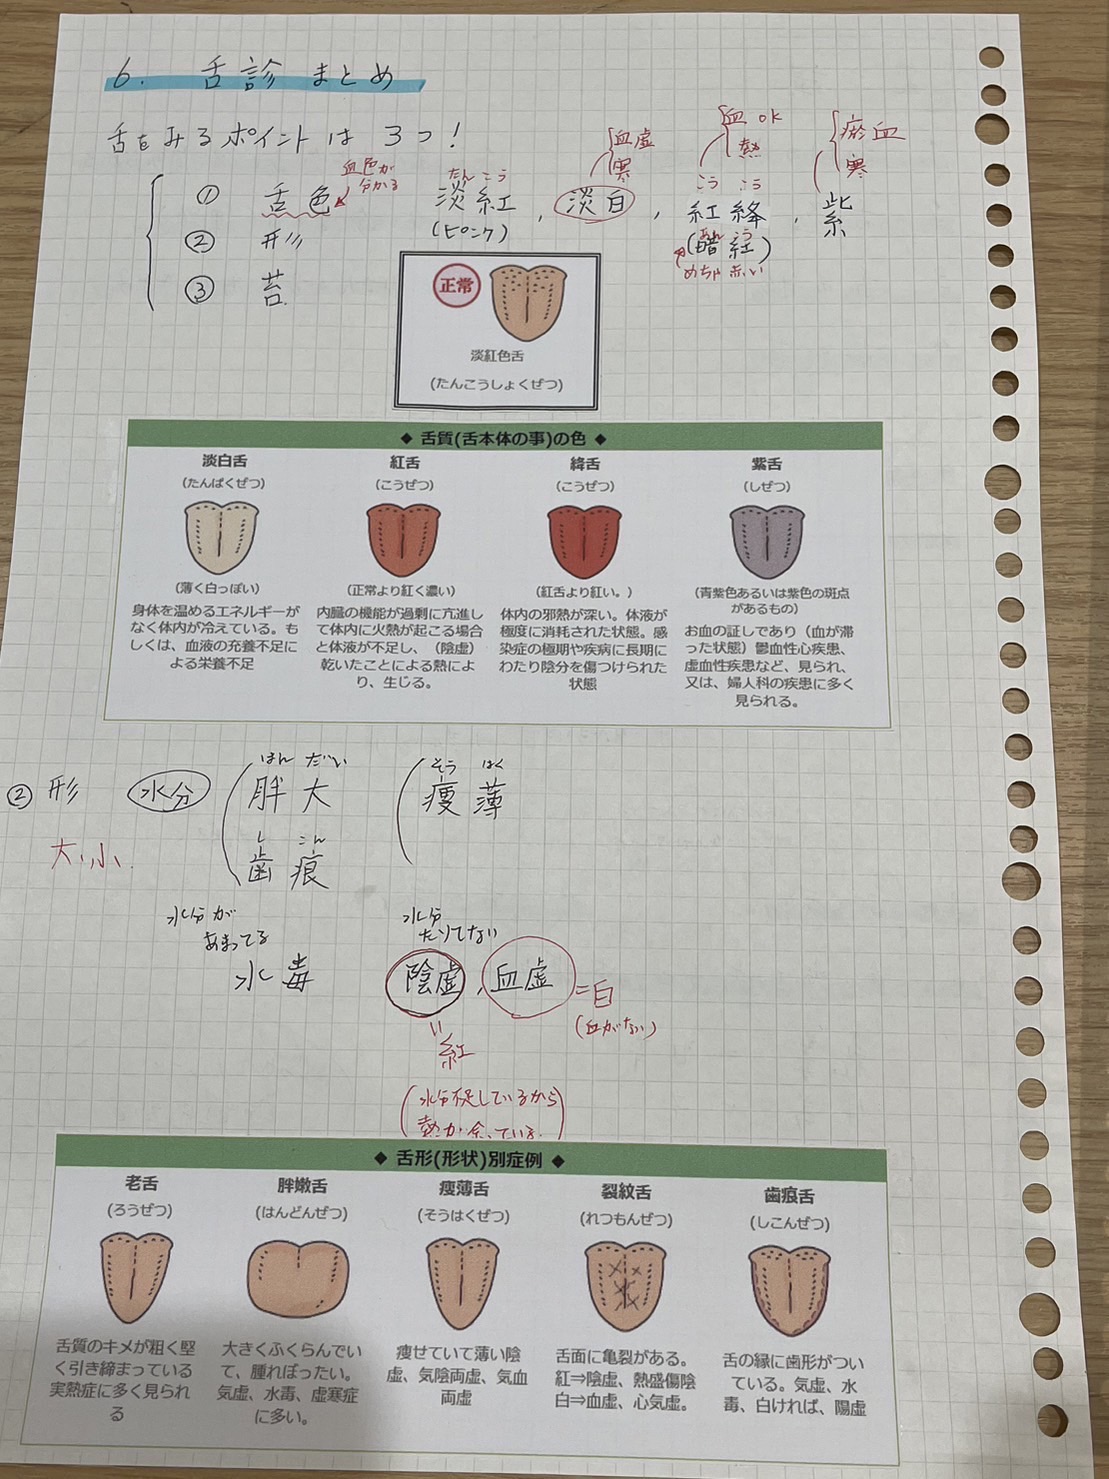 6. 舌診 まとめ
舌をみるポイントは 3つ!
① 舌色
血色が
分かる
② 形
③ 苔
たんこう
淡紅
(ピンク)
, 淡白 ,
血虚
寒
血 OK
熱
こう こう
紅絳 ,
あん こう
(暗紅)
めちゃ 赤い
瘀血
寒
紫
正常
淡紅色舌
(たんこうしょくぜつ)
◆ 舌質(舌本体の事)の色 ◆
淡白舌
(たんぱくぜつ)
(薄く白っぽい)
身体を温めるエネルギーが
なく体内が冷えている。も
しくは、血液の充養不足に
よる栄養不足
紅舌
(こうぜつ)
(正常より紅く濃い)
内臓の機能が過剰に亢進し
て体内に火熱が起こる場合
と体液が不足し、(陰虚)
乾いたことによる熱によ
り、生じる。
絳舌
(こうぜつ)
(紅舌より紅い。)
体内の邪熱が深い。体液が
極度に消耗された状態。感
染症の極期や疾病に長期に
わたり陰分を傷つけられた
状態
紫舌
(しぜつ)
(青紫色あるいは紫色の斑点
があるもの)
お血の証しであり(血が滞
った状態)鬱血性心疾患、
虚血性疾患など、見られ、
又は、婦人科の疾患に多く
見られる。
② 形 水分
大小
はん だい
胖大
し こん
歯痕
そう はく
痩薄
水分が
あまってる
水毒
水分
たりてない
陰虚 , 血虚 =白
(血がない)
紅
(水分不足しているから
熱が余っている
◆ 舌形(形状)別症例 ◆
老舌
(ろうぜつ)
舌質のキメが粗く堅
く引き締まっている
実熱症に多く見られ
る
胖嫩舌
(はんどんぜつ)
大きくふくらんでい
て、腫れぼったい。
気虚、水毒、虚寒症
に多い。
痩薄舌
(そうはくぜつ)
痩せていて薄い陰
虚、気陰両虚、気血
両虚
裂紋舌
(れつもんぜつ)
舌面に亀裂がある。
紅⇒陰虚、熱盛傷陰
白⇒血虚、心気虚。
歯痕舌
(しこんぜつ)
舌の縁に歯形がつい
ている。気虚、水
毒、白ければ、陽虚